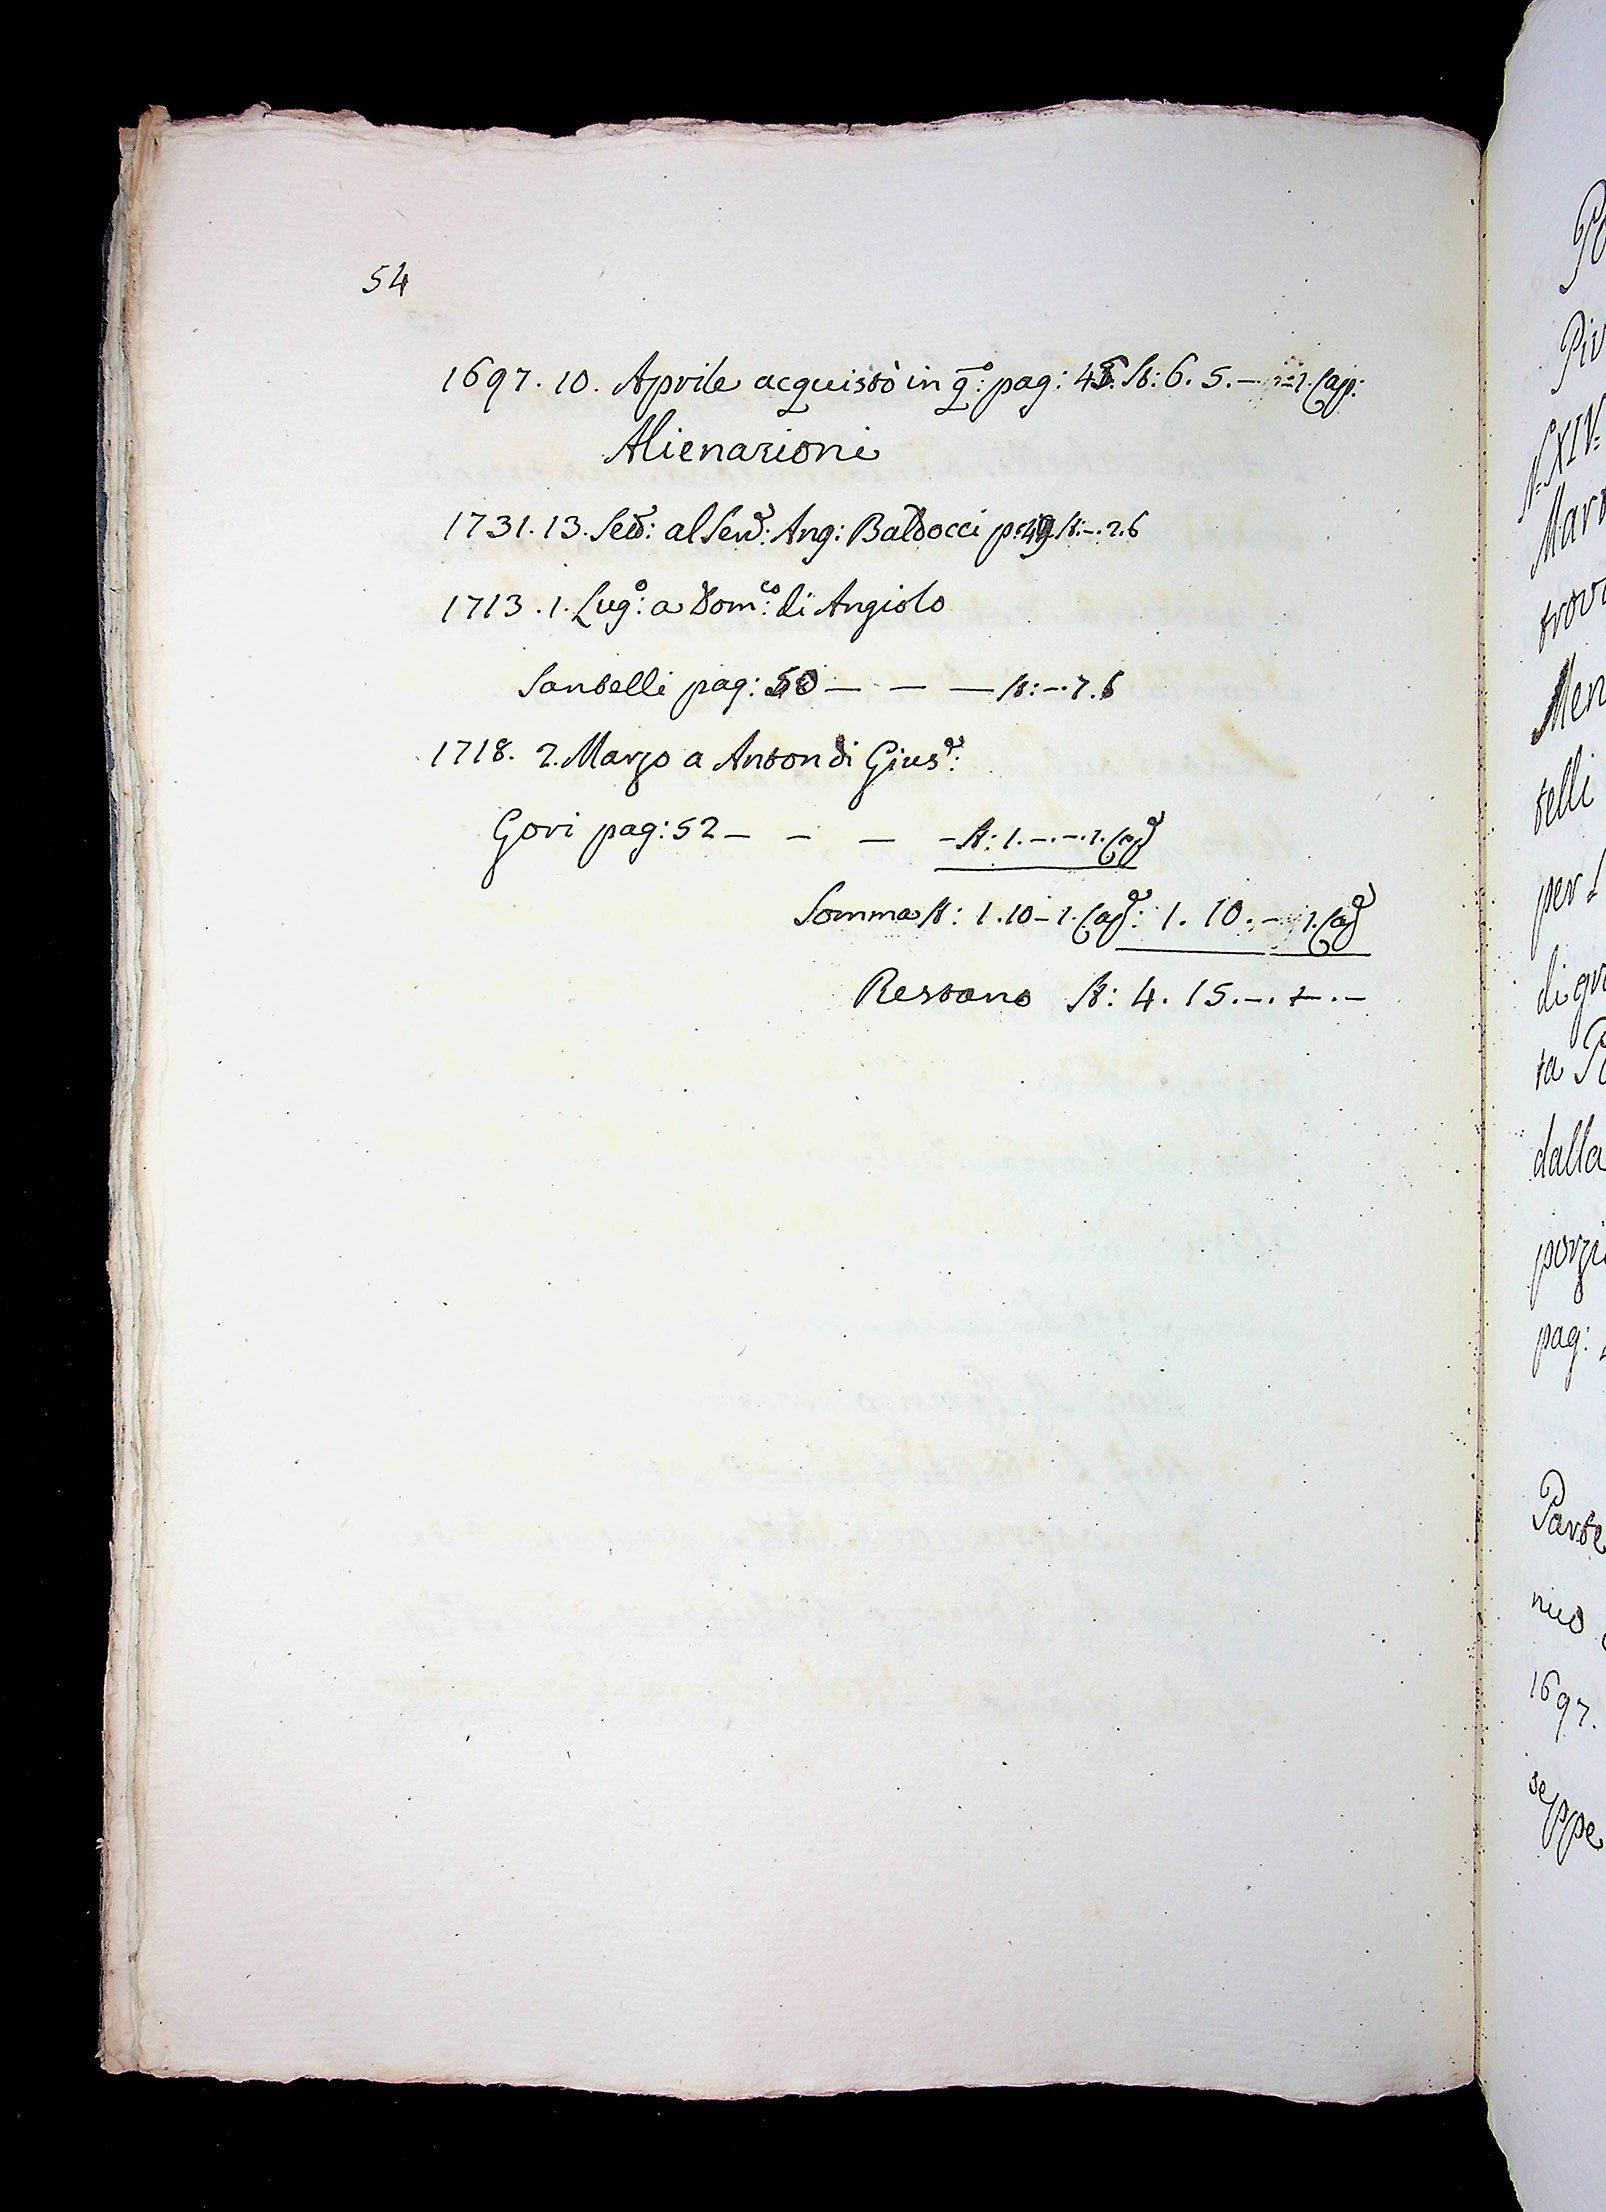 54
1697. 10. Aprile acquistò in q:º pag: 48. St: 6. 5. — 1. Cap:
Alienazioni
1731. 13. Sett: al Send: Ang: Baldocci p: 49 St: –. 2. 6
1713. 1. Lug:º a Dom:co di Angiolo
Santelli pag: 50 — — — St: –. 7. 6
1718. 2. Marzo a Anton di Gius:e
Govi pag: 52 – – – – St: 1. –. –. 1. Cape
Somma St: 1. 10 – 1. Cape: 1. 10. – 1. Cape
Restano St: 4. 15. –. –. –
Piv
N: XIV=
Mart
trov
Men
telli
per
di gr
ta
dalla
porzi
pag:
Parte
nio
1697.
seppe